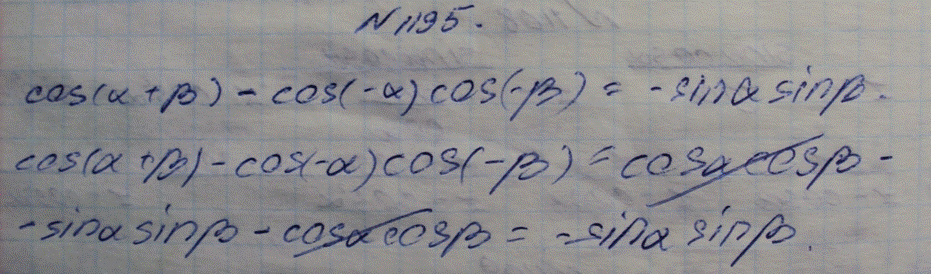 N 1195.
cos(α + β) - cos(-α) cos(-β) = - sinα sinβ.
cos(α + β) - cos(-α) cos(-β) = cosα cosβ -
- sinα sinβ - cosα cosβ = - sinα sinβ.